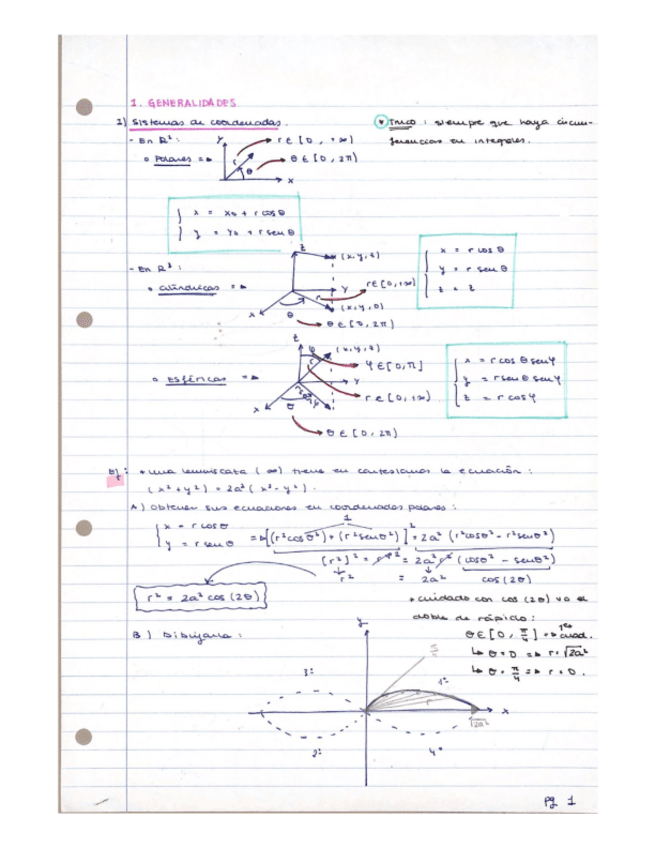 1. GENERALIDADES
1) Sistemas de coordenadas.
* Truco: siempre que haya circun-
ferencias en integrales.
- En R²:
• Polares ⇒
y
r
θ
x
r ∈ [0, +∞)
θ ∈ [0, 2π)
x = x₀ + r cosθ
y = y₀ + r senθ
- En R³:
• cilíndricas ⇒
z
(x, y, z)
y
r
r ∈ [0, +∞)
(x, y, 0)
x
θ
θ ∈ [0, 2π)
x = r cosθ
y = r senθ
z = z
• Esféricas ⇒
z
φ
(x, y, z)
r
φ ∈ [0, π]
y
r ∈ [0, +∞)
x
θ
θ ∈ [0, 2π)
x = r cosθ senφ
y = r senθ senφ
z = r cosφ
Ej: * una lemniscata (∞) tiene en cartesianas la ecuación:
(x² + y²) = 2a² (x² - y²).
A) Obtener sus ecuaciones en coordenadas polares:
1
x = r cosθ
y = r senθ
⇒ [(r²cosθ²) + (r²senθ²)]² = 2a² (r²cosθ² - r²senθ²)
[r²]² = r⁴ = 2a² r² (cosθ² - senθ²)
r² = 2a² cos(2θ)
r² = 2a² cos (2θ)
* cuidado con cos (2θ) va el
doble de rápido:
B) Dibujarla:
y
θ ∈ [0, π/4] ⇒ 1er cuad.
↳ θ = 0 ⇒ r = √2a²
↳ θ = π/4 ⇒ r = 0.
π/4
3º
1º
r
x
√2a²
2º
4º
pg 1